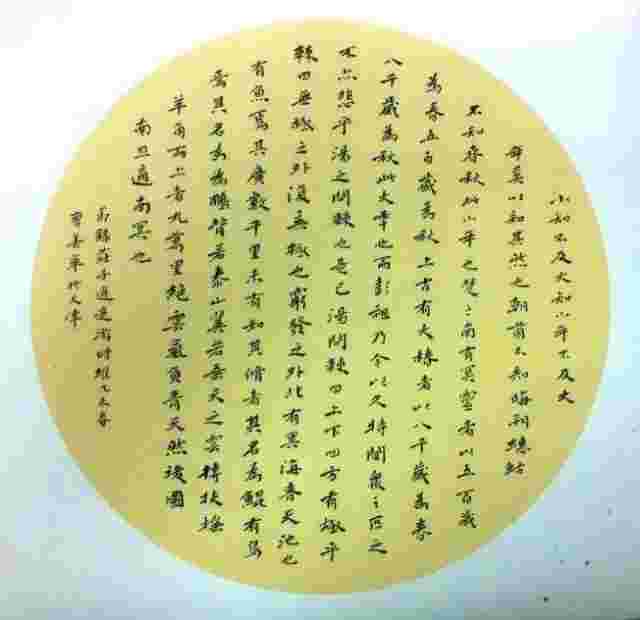 小知不及大知小年不及大
年奚以知其然也朝菌不知晦朔蟪蛄
不知春秋此小年也楚之南有冥靈者以五百歲
為春五百歲為秋上古有大椿者以八千歲為春
八千歲為秋此大年也而彭祖乃今以久特聞眾人匹之
不亦悲乎湯之問棘也是已湯問棘曰上下四方有極乎
棘曰無極之外復無極也窮發之外北有冥海者天池也
有魚焉其廣數千里未有知其脩者其名為鯤有鳥
焉其名為鵬背若泰山翼若垂天之雲摶扶搖
羊角而上者九萬里絕雲氣負青天然後圖
南且適南冥也
莊子逍遙游時維乙未春